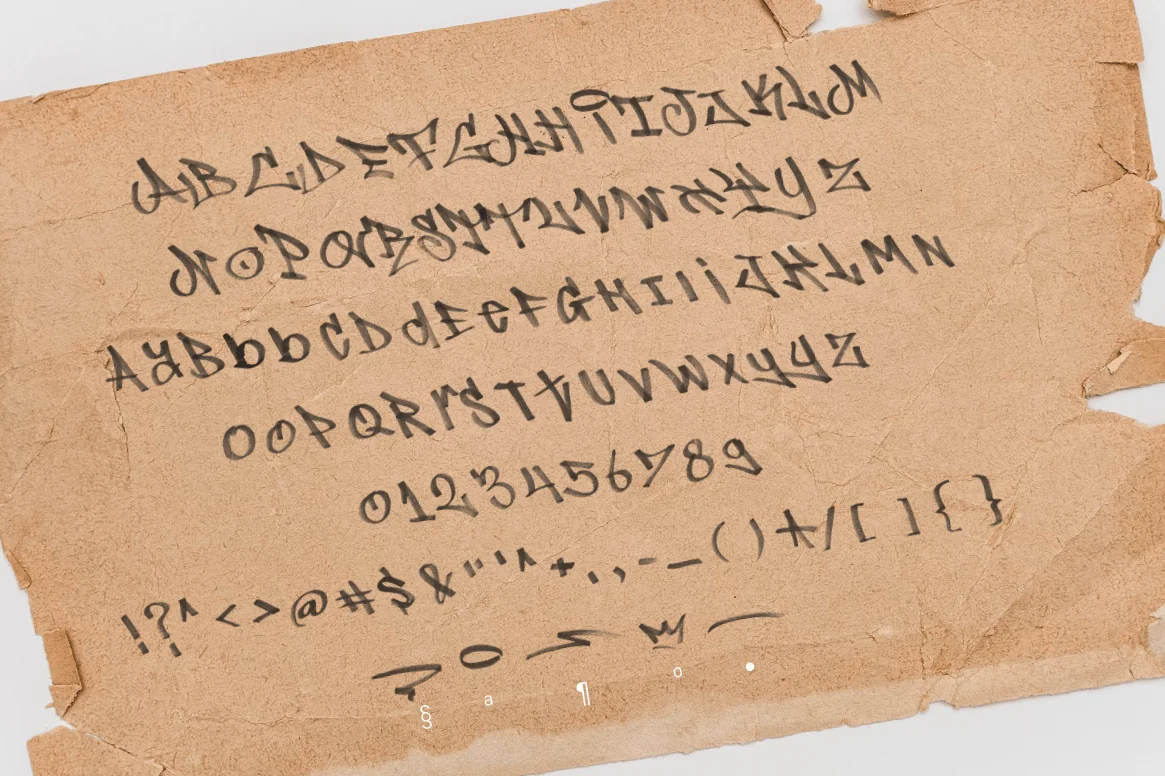 ABCDEFGHHiIJJKLM
NOPQRRSTTUVWXYyZ
AaBbbCDdEeFGHIIiJKLMN
OOPQRrSTtUVWXyyZ
0123456789
!?^<>@#$&"'^+.,-_()*/[]{}
§ a ¶ º •